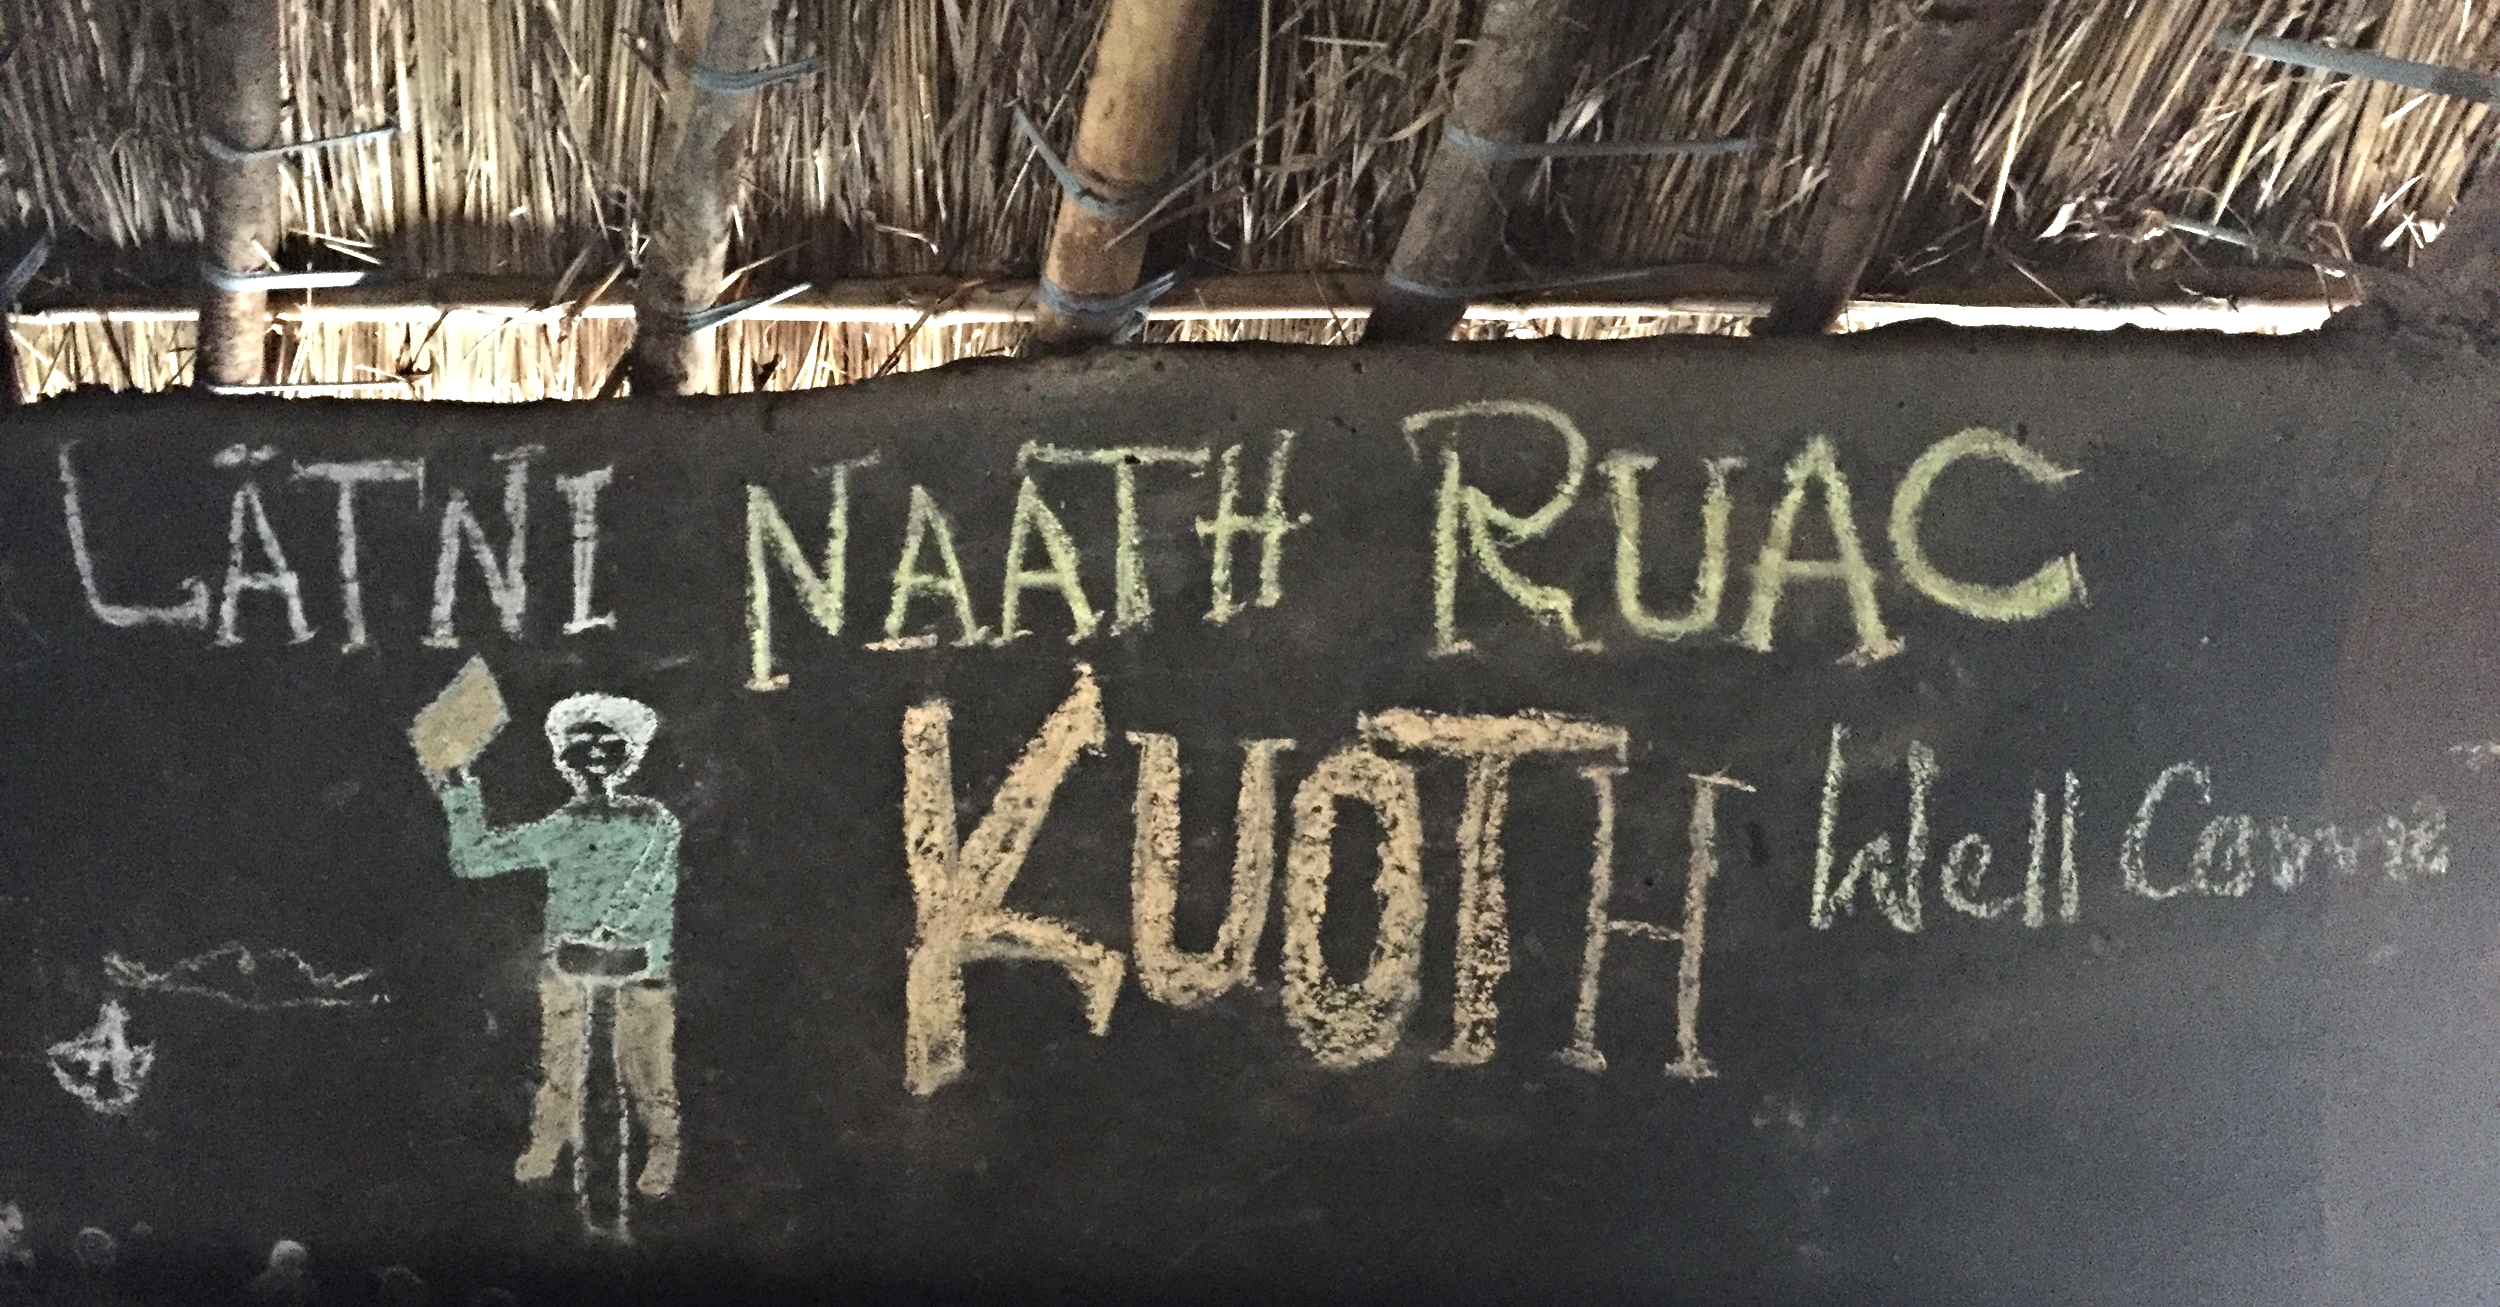 LÄTNI NAATH RUAC
KUOTH Well Come